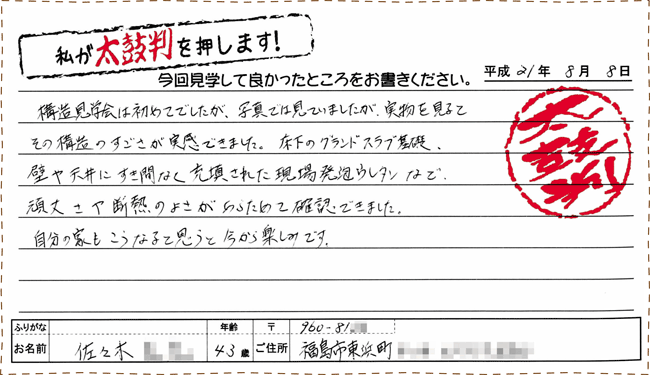 私が太鼓判を押します!
今回見学して良かったところをお書きください。 平成21年 8月 8日
構造見学会は初めてでしたが、写真では見ていましたが、実物を見て
その構造のすごさが実感できました。床下のグランドスラブ基礎、
壁や天井にすき間なく充填された現場発泡ウレタンなど
頑丈さや断熱のよさがあらためて確認できました。
自分の家もこうなると思うと今から楽しみです。
太鼓判
ふりがな 年齢 〒 960-81
お名前 佐々木 43歳 ご住所 福島市東浜町